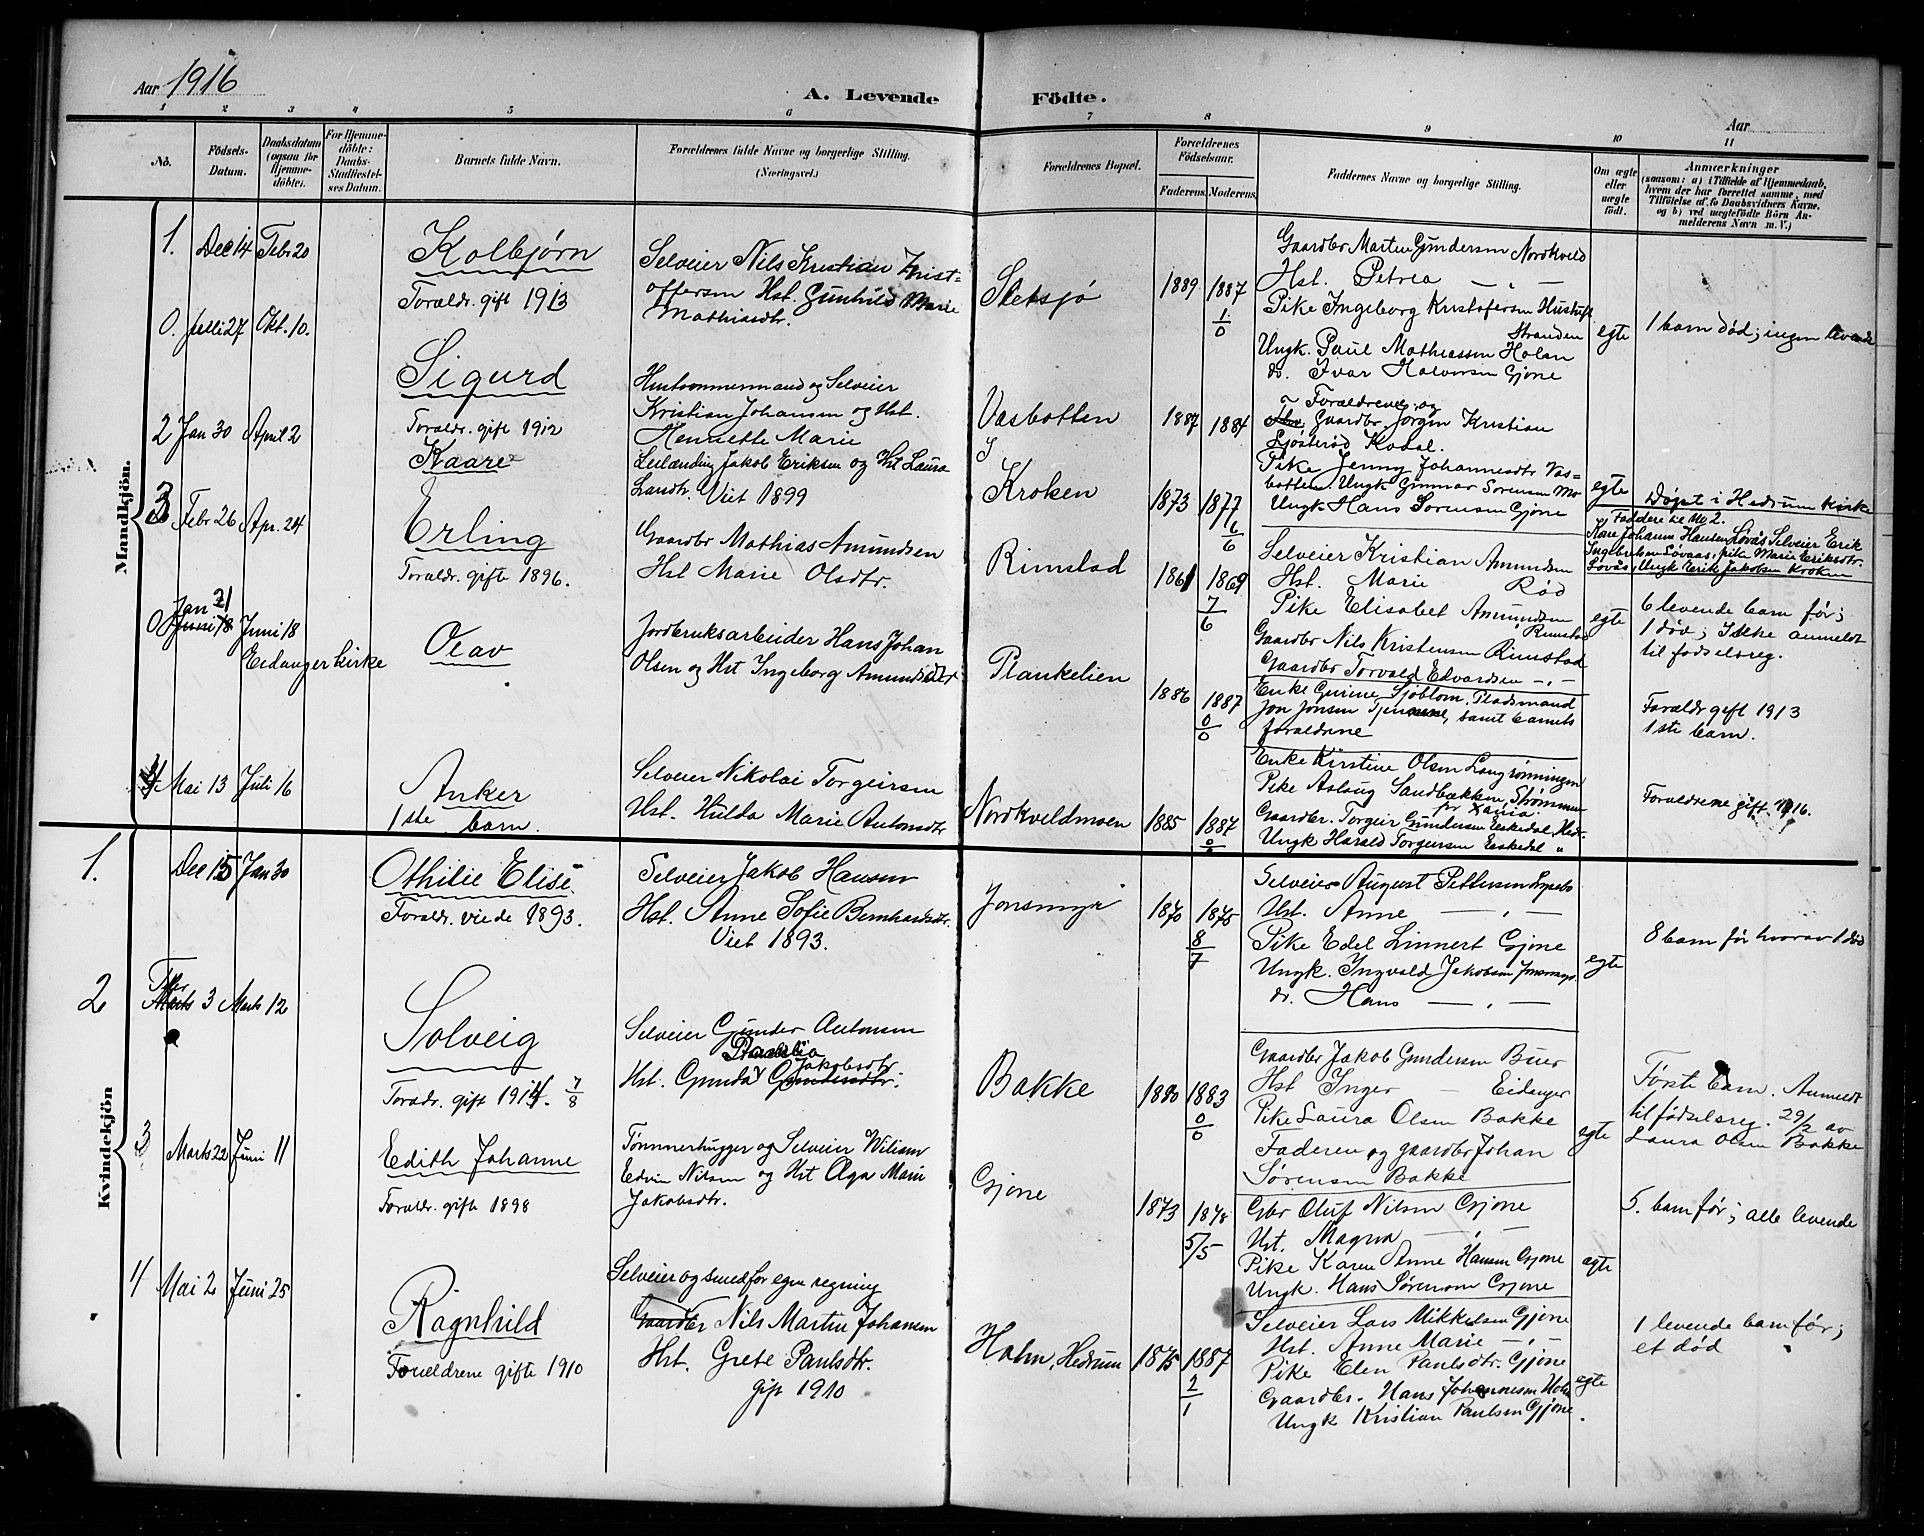 Aar 1916
A. Levende Födte.
Aar
1 2 3 4 5 6 7 8 9 10 11
No.
Födsels-Datum.
Daabsdatum (ogsaa for Hjemmedöbte).
For Hjemmedöbte: Daabs-Stadfæstelses Datum.
Barnets fulde Navn.
Forældrenes fulde Navne og borgerlige Stilling.
(Næringsvei.)
Forældrenes Bopæl.
Forældrenes Födselsaar.
Faderens. Moderens.
Faddernes Navne og borgerlige Stilling.
Om ægte eller uægte födt.
Anmærkninger
(saasom: a) i Tilfælde af Hjemmedaab, hvem der har forrettet samme, med Tilföielse af to Daabsvidners Navne. og b) ved uægtefödte Börn Anmelderens Navn m. V.)
Mandkjön.
1. Dec 14 Febr 20
0. Juli 27 Okt. 10.
Kolbjørn
Foraldr. gift 1913
Selveier Nils Kristian Krist-
offersen Hst. Gunhild Marie
Mathiasdtr.
Sletsjö
1889 1887
1/0
Gaardbr Marten Gundersen Nordkveld
Hst. Petrea — „ —
Pike Ingeborg Kristofersen
Stranden
Ungk. Paul Mathiassen Holan
do. Ivar Halvorsen Gjone
egte
1 barn död; ingen levende
2 Jan 30 April 2
Sigurd
Foraldr. gift 1912
Kaare
Hustømmermand og Selveier
Kristian Johansen og Hst.
Henriette Marie
Vasbotten
1887 1884
Forældrene og
Gaardbr. Jørgen Kristian
Sjøsteröd Kodal.
Pike Jenny Johannesdtr Vas-
botten, Ungk Gunnar Sorensen Mo
Ungk Hans Sorensen Gjone
egte
3 Febr 26 Apr. 24
Leilænding Jakob Eriksen og Hst Laura
Landtr. Viet 1899
Kroken
1873 1877
6/6
Døpt i Hedrum kirke
Faddere til No 2.
Kone Johanne Hansen Lövås Selveier Erik
Ingebretsen Lövaas, pike Marie Eriksdtr.
Lövås, Ungk Erik Jakobsen Kroken
Erling
Foraldr. gifte 1896.
Gaardbr Mathias Amundsen
Hst Marie Olsdtr.
Rimstad
1861 1869
7/6
Selveier Kristian Amundsen
Hst. Marie Röd
Pike Elisabet Amundsen
Rimstad
Gaardbr Nils Kristensen Rimstad
Gaardbr Torvald Edvardsen — „ —
egte
6 levende barn før;
1 död; Ikke anmeldt
til fødselsreg.
0 Jan 21
Juni 18 Juni 18
Eidanger kirke
Olav
Jordbruksarbeider Hans Johan
Olsen og Hst Ingeborg Amundsdtr
Plankelien
1886 1887
0/0
Enke Gurine Sjöblom, Pladsmand
Jon Jonsen samt barnets
foraldrene
Foraldr gift 1913
1ste barn.
4 Mai 13 Juli 16
Anker
1ste barn.
Selveier Nikolai Torgeirsen
Hst. Hulda Marie Antonsdtr
Nordkveldmoen
1885 1887
Enke Kirstine Olsen Langrønningen
Pike Aslaug Sandbækken, Strømmen
Gaardbr. Torgeir Gundersen Eeskedal, Hed-
Ungk Harald Torgeirsen Eeskedal „
Foraldrene gift 1916.
Kvindekjön
1. Dec 15 Jan 30
Othilie Elise
Foraldr. viede 1893.
Selveier Jakob Hansen
Hst. Anne Sofie Bernhardsdtr.
Viet 1893.
Jonsmyr
1870 1875
8/7
Selveier August Pettersen
Hst. Anne — „ —
Pike Edel Linnert Gjone
Ungk. Ingvald Jakobsen Jonsmyr
do. Hans — „ —
egte
8 barn før hvorav 1 död
2 Febr
Marts 3 Marts 12
Solveig
Foraldr. gift 1914. 7/8
Selveier Gunder Antonsen
Jakobsdtr
Hst. Gunda Gundersdtr.
Bakke
1880 1883
0/0
Gaardbr Jakob Gundersen Buer
Hst Inger — Eidanger
Pike Laura Olsen Bakke
Faderen og gaardbr Johan
Sørensen Bakke
egte
Første barn. Anmeldt
til fødselsreg. 29/2 av
Laura Olsen Bakke
3 Marts 22 Juni 11
Edith Johanne
Foraldr. gifte 1898
Tømmerhugger og Selveier Wiliam
Edvin Nilsen og Hst Olga Marie
Jakobsdtr.
Gjone
1873 1878
5/5
Gbr Oluf Nilsen Gjone
Hst. Magna — „ —
Pike Karen Anne Hansen Gjone
Ungk. Hans Sørensen Gjone
egte
5. barn før; alle levende
4 Mai 2 Juni 25
Ragnhild
Foraldrene gifte 1910
Selveier og smed for egen regning
Gaardbr Nils Martin Johansen
Hst. Grete Paulsdtr.
gift 1910
Holm, Hedrum
1875 1887
2/1
Selveier Lars Mikkelsen Gjone
Hst. Anne Marie — „ —
Pike Elen Paulsdtr. Gjone
Gaardbr. Hans Johannesen Holm
Ungk Kristian Paulsen Gjone.
egte
1 levende barn før;
et död